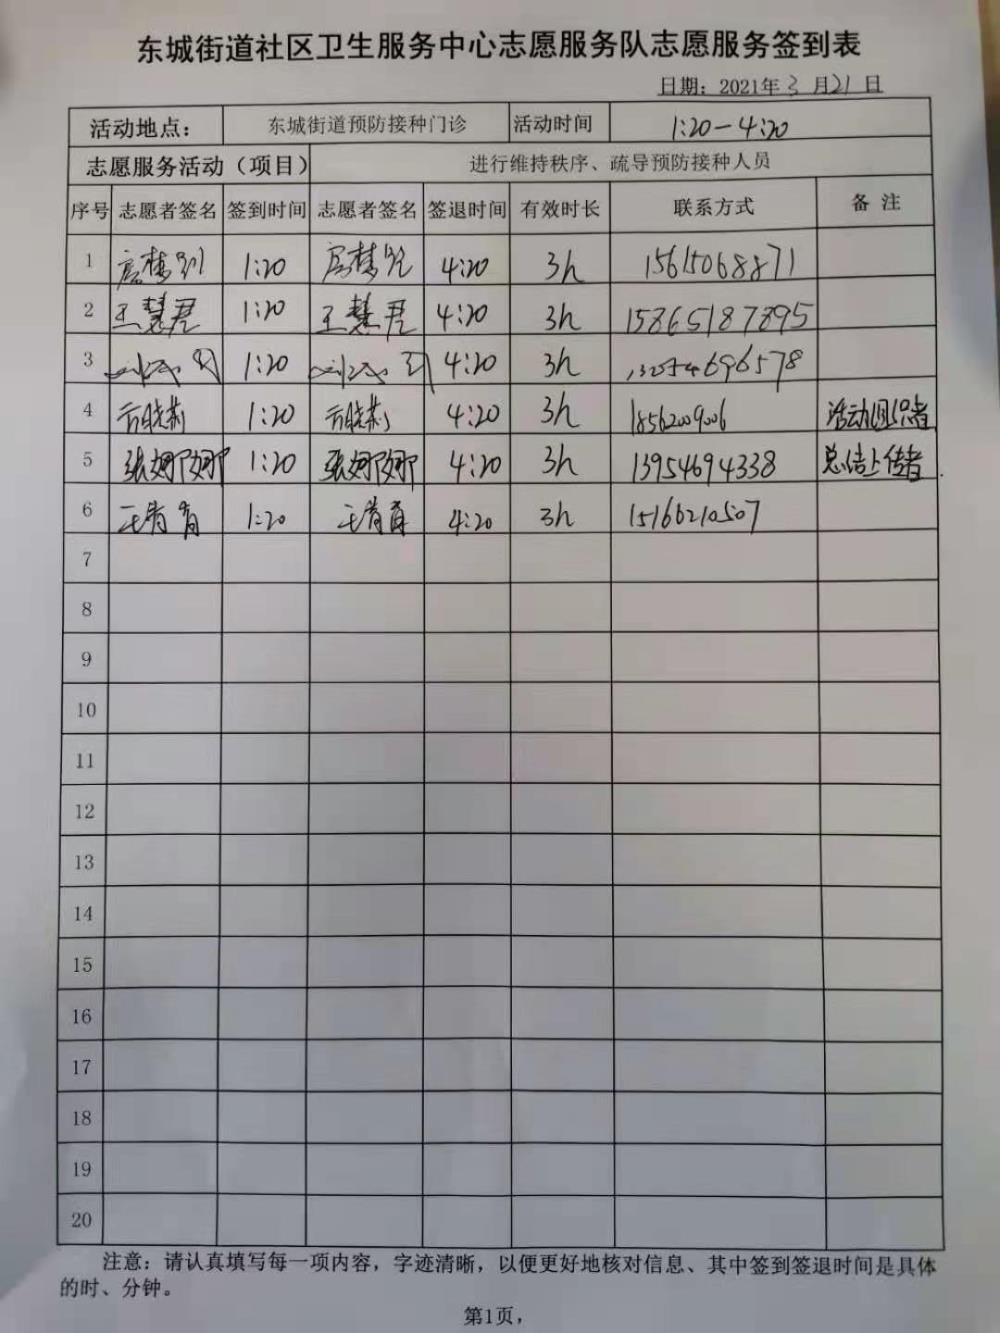 东城街道社区卫生服务中心志愿服务队志愿服务签到表
日期：2021年3月21日
活动地点： 东城街道预防接种门诊 活动时间 1:20-4:20
志愿服务活动（项目） 进行维持秩序、疏导预防接种人员
序号 志愿者签名 签到时间 志愿者签名 签退时间 有效时长 联系方式 备注
1 1:20 4:20 3h 15615068871
2 王慧君 1:20 王慧君 4:20 3h 15865187895
3 1:20 4:20 3h 13054696578
4 1:20 4:20 3h 活动组织者
5 张娜娜 1:20 张娜娜 4:20 3h 13954694338 总结上传者
6 王青青 1:20 王青青 4:20 3h 15166210507
7
8
9
10
11
12
13
14
15
16
17
18
19
20
注意：请认真填写每一项内容，字迹清晰，以便更好地核对信息、其中签到签退时间是具体
的时、分钟。
第1页，